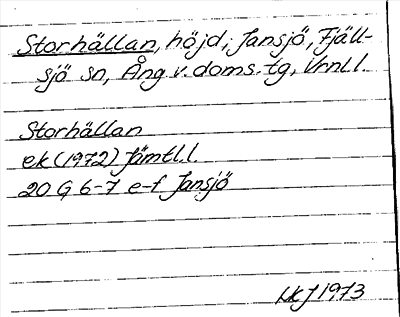 Storhällan, höjd, Jansjö, Fjäll-
sjö sn, Ång. v. doms. tg, Vrnl. l.
Storhällan
ek (1972) Jämtl. l.
20 G 6-7 e-f Jansjö
1973